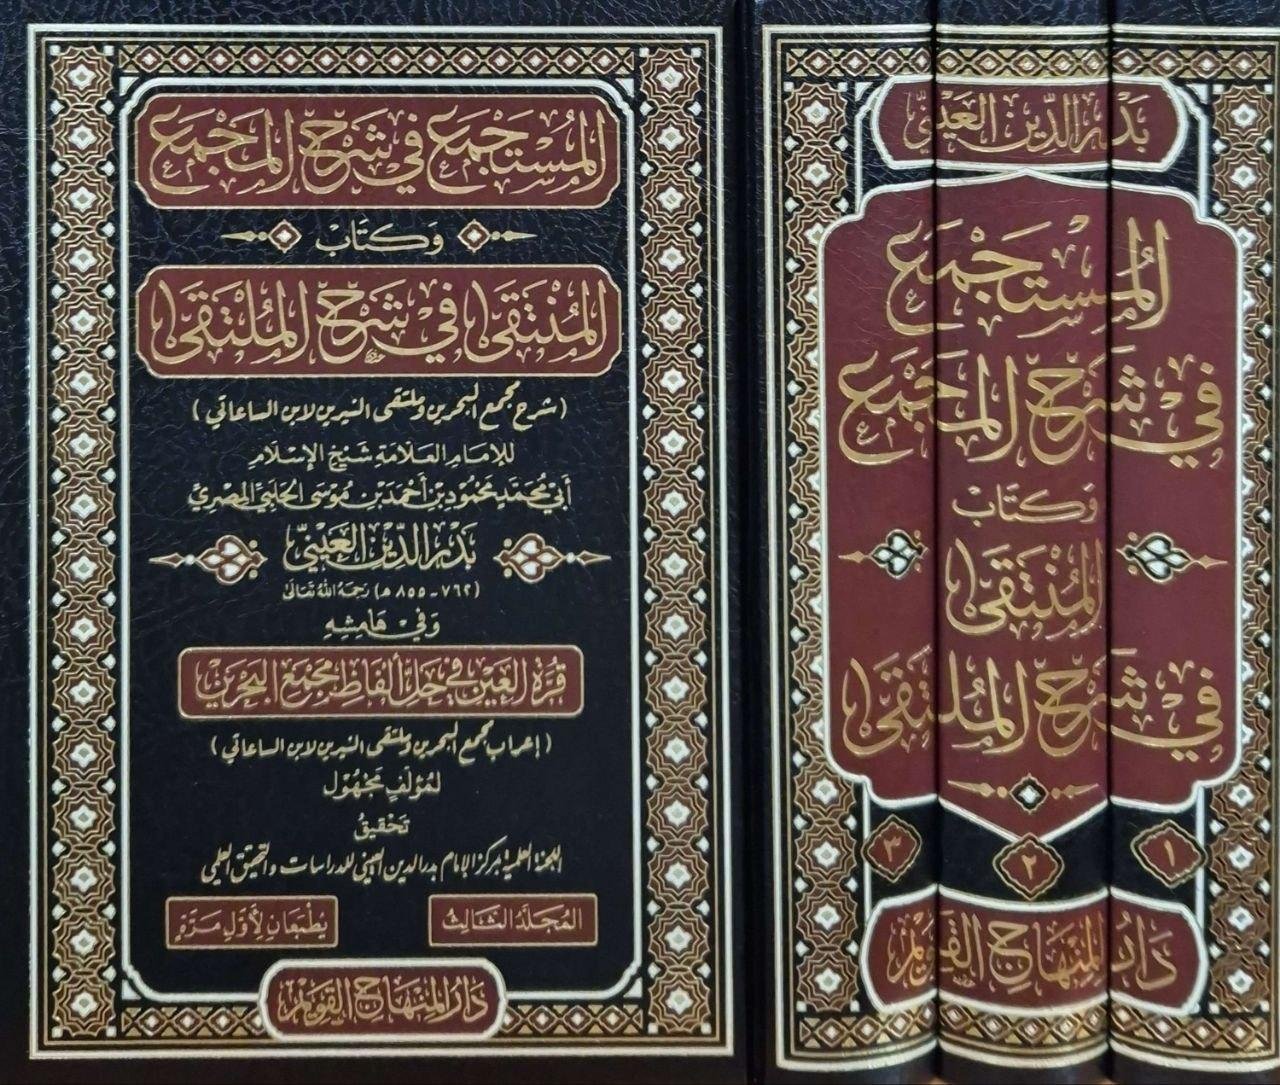 المُسْتَجْمَع في شَرْح المَجْمَع
وَكِتَابُ
المُنْتَقَى في شَرْح المُلْتَقَى
(شرح مجمع البحرين وملتقى النيرين لابن الساعاتي)
للإمام العلامة شيخ الإسلام
أبي محمد محمود بن أحمد بن موسى الحلبي المصري
بدر الدين العيني
(٧٦٢ - ٨٥٥ هـ) رحمه الله تعالى
وفي هامشه
قرة العين في حل ألفاظ مجمع البحرين
(إعراب مجمع البحرين وملتقى النيرين لابن الساعاتي)
لمؤلف مجهول
تحقيق
اللجنة العلمية بمركز الإمام بدر الدين العيني للدراسات والتحقيق العلمي
المجلد الثالث
يطبعان لأول مرة
دار المنهاج القويم
بدر الدين العيني
المستجمع
في شرح المجمع
وكتاب
المنتقى
في شرح الملتقى
١
٢
٣
دار المنهاج القويم